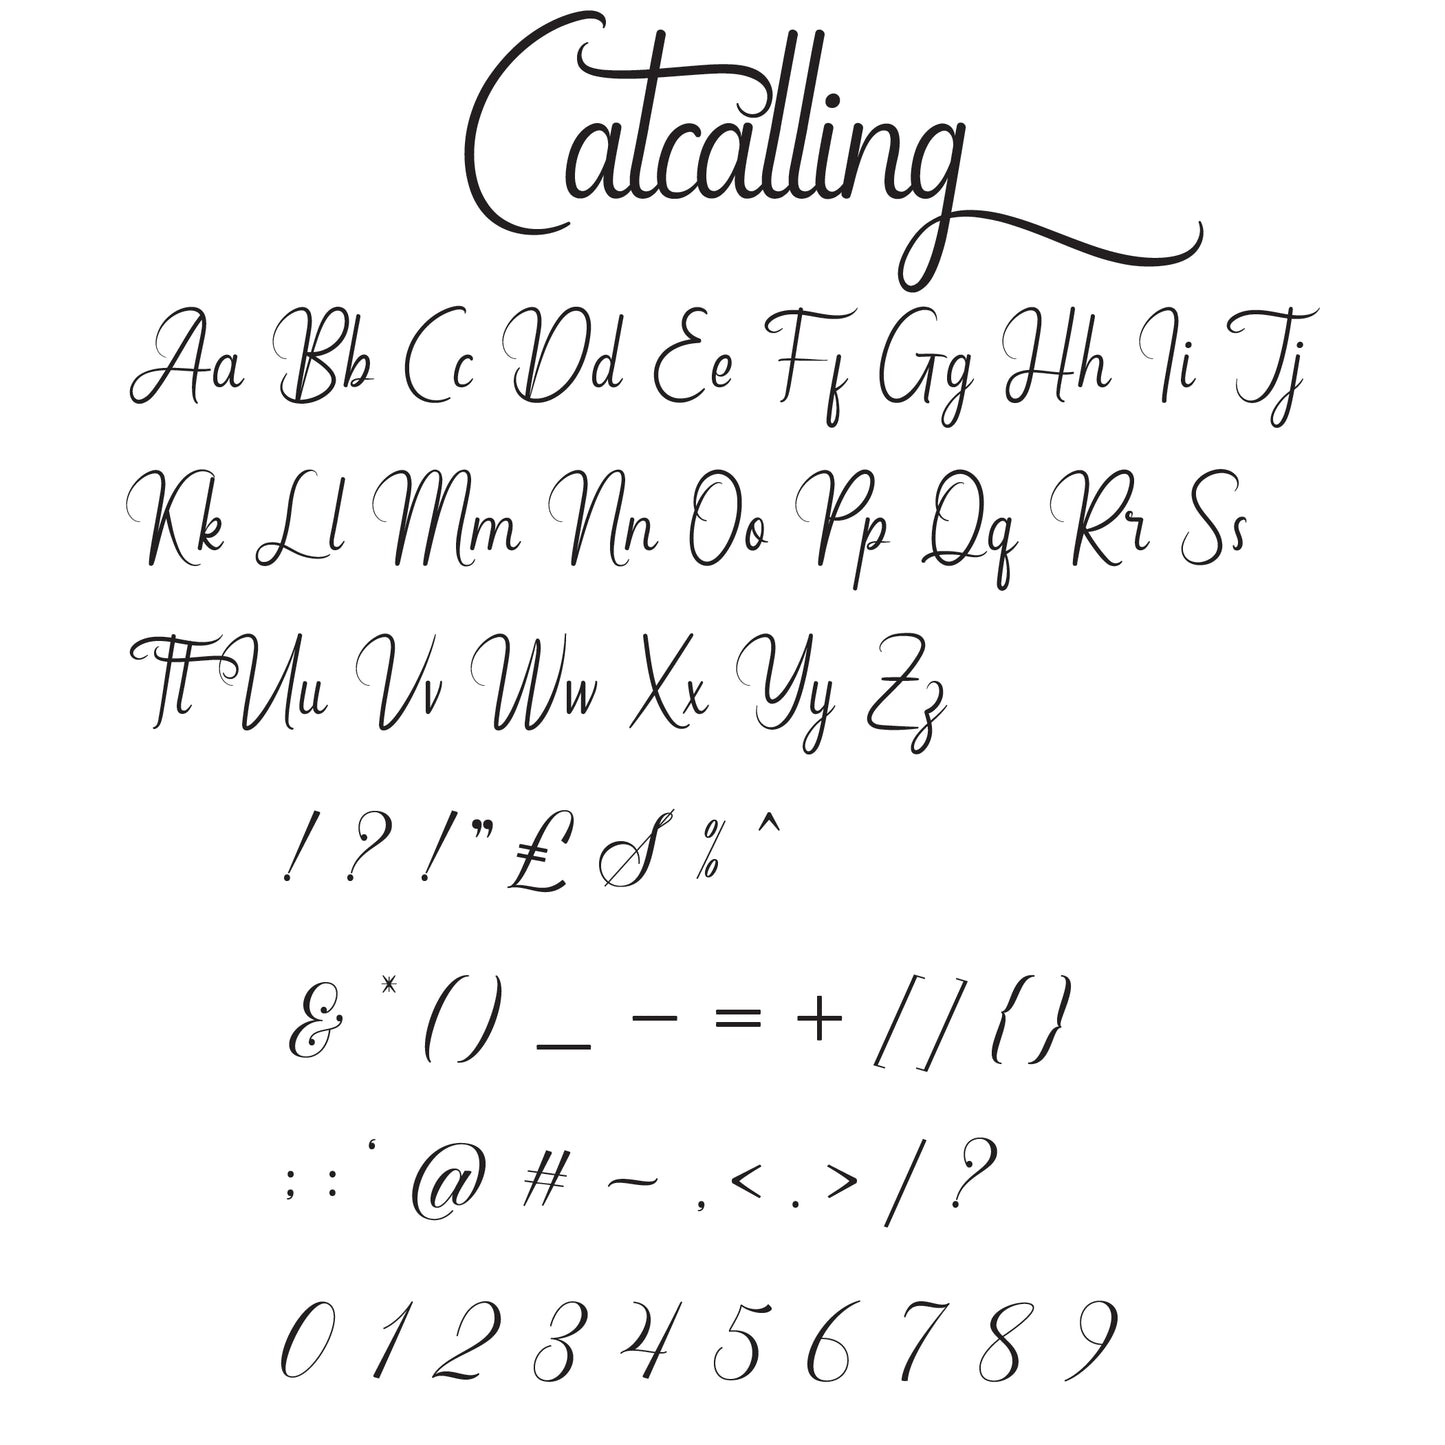 Catcalling
Aa Bb Cc Dd Ee Ff Gg Hh Ii Jj
Kk Ll Mm Nn Oo Pp Qq Rr Ss
Tt Uu Vv Ww Xx Yy Zz
! ? ! " £ $ % ^
& * ( ) _ - = + [ ] { }
; : ‘ @ # ~ , < . > / ?
0 1 2 3 4 5 6 7 8 9